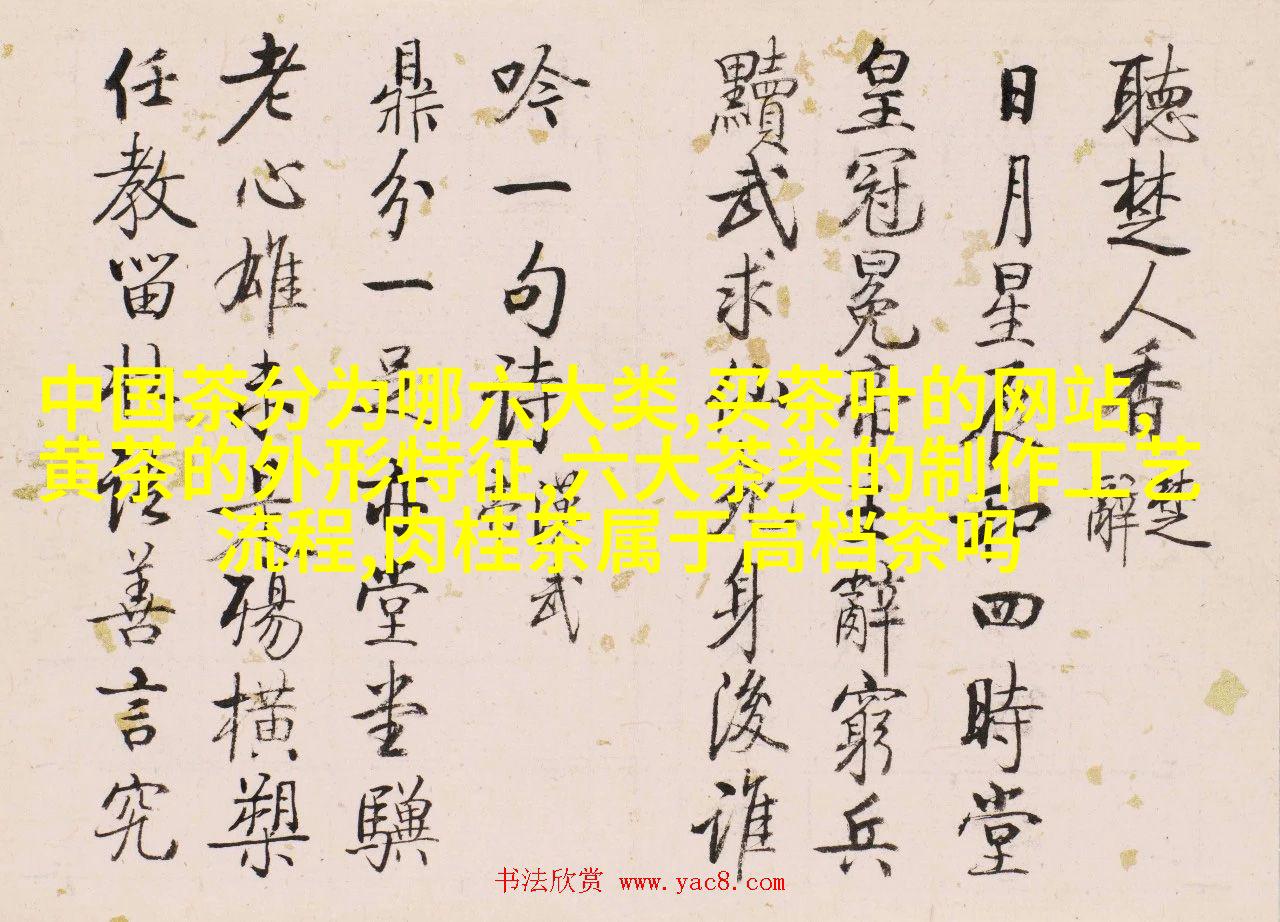 聽楚人香
楚辭
日月星辰和四時堂
皇冠冕帝王辭窮兵
黷武求仙死身後誰
吟一句詩
漢武
鼎分一亦堂堂驥
老心雄橫槊
任教留善言究
中国茶分为哪六大类,买茶叶的网站,
黄茶的外形特征,六大茶类的制作工艺
流程,肉桂茶属于高档茶吗
书法欣赏 www.yac8.com